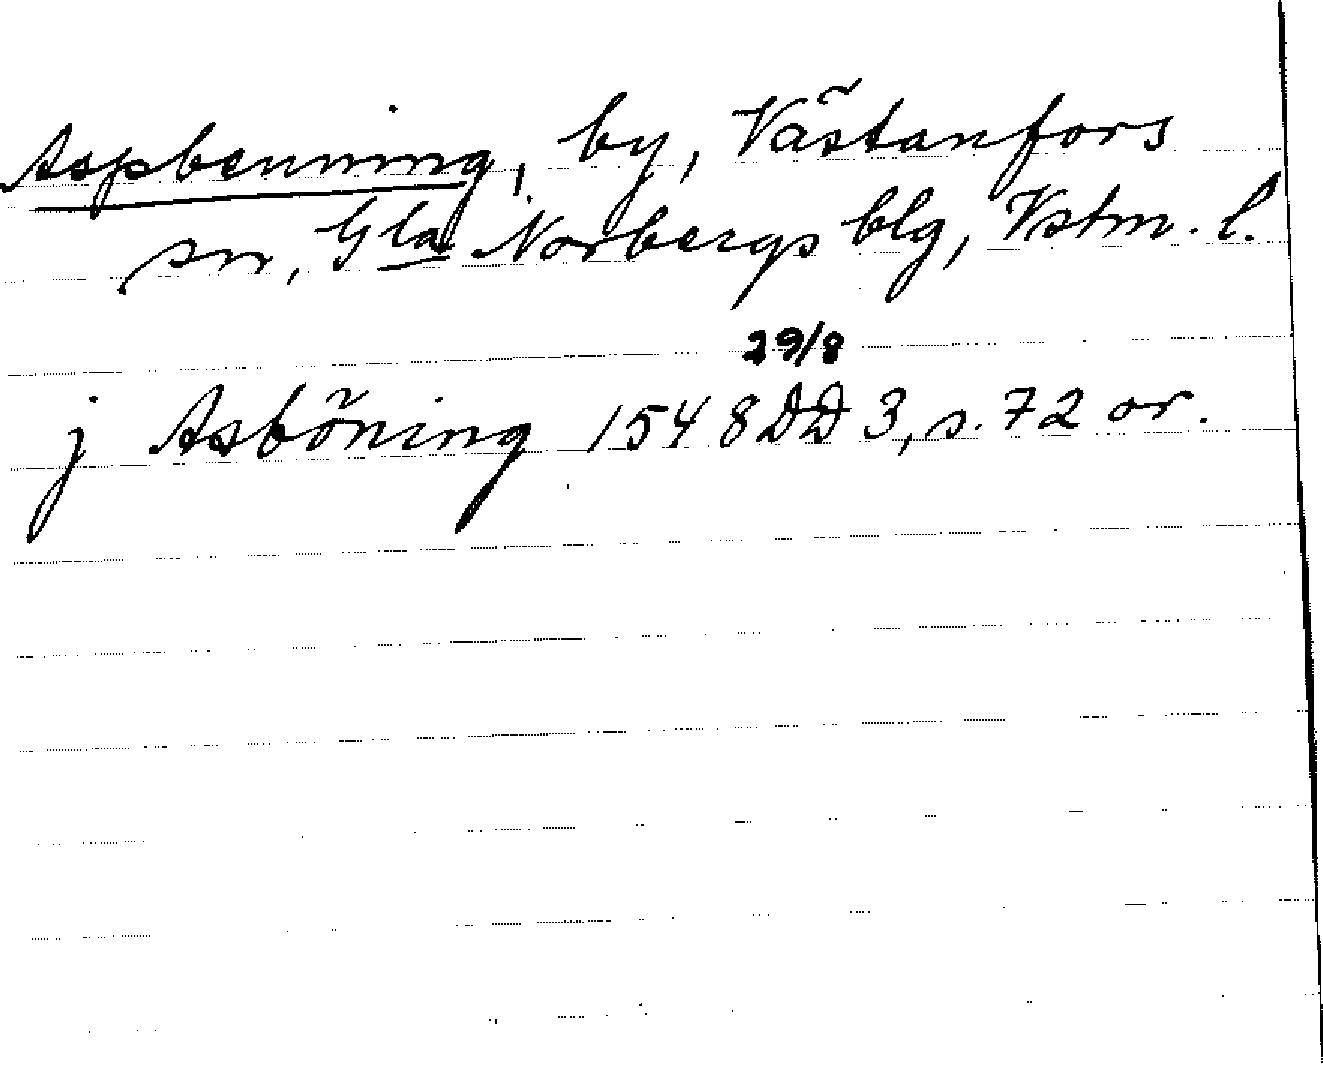 Aspbenning, by, Västanfors
sn, Gla Norbergs blg, Vstm. l.
29/8
j Asböning 1548 DD 3, s. 72 or.